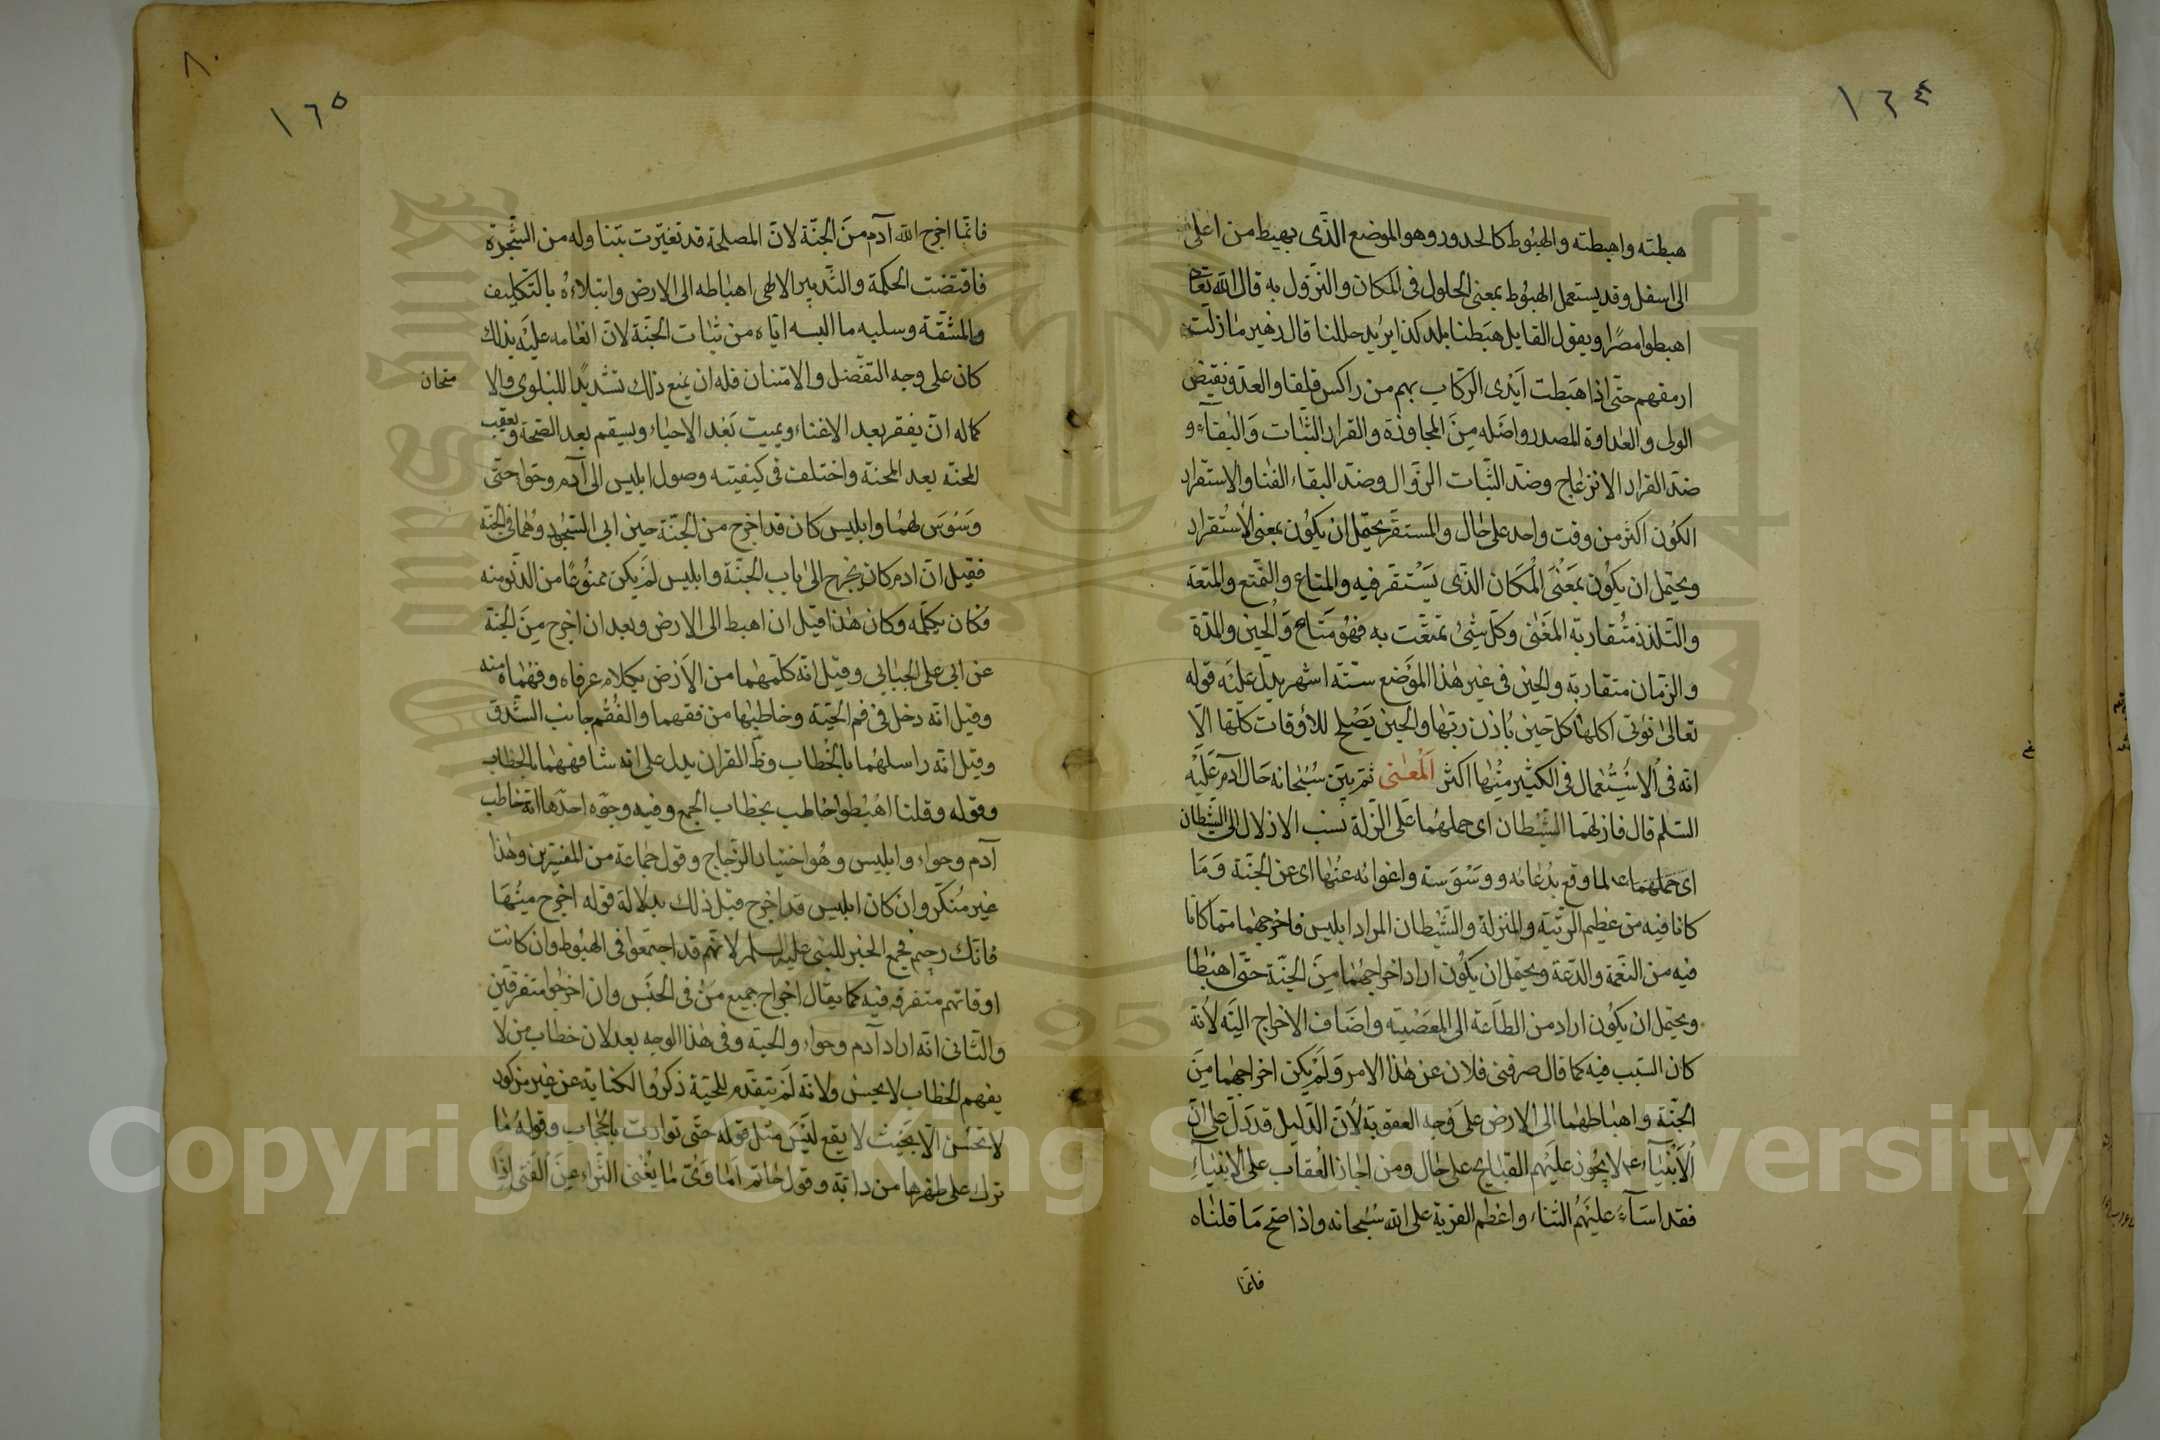 ١٦٤
هبطته واهبطته والهبوط كالحدور وهو الموضع الذى يهبط من اعلى
الى اسفل وقد يستعمل الهبوط بمعنى الحلول فى المكان والنزول به قال الله تعالى
اهبطوا مصرًا ويقول القايل هبطنا بلد كذا يريد حللنا قال زهير مازلت
ارمقهم حتى اذا هبطت ايدى الركاب بهم من راكس قلقا والعدو نقيض
الولى والعداوة المصدر واصله من المجاوزة والقرار الثبات والبقآء و
ضد القرار الانزعاج وضد الثبات الزوال وضد البقاء الفنا والاستقرار
الكون اكثر من وقت واحد على حال والمستقر يحتمل ان يكون بمعنى الاستقرار
ويحتمل ان يكون بمعنى المكان الذى يستقر فيه والمتاع والتمتع والمتعة
والتلذذ متقاربة المعنى وكل شئ تمتعت به فهو متاع والحين والمدة
والزمان متقاربة والحين فى غير هذا الموضع ستة اشهر يدل عليه قوله
تعالى تؤتى اكلها كل حين باذن ربها والحين يصلح للاوقات كلها الا
انه فى الاستعمال فى الكثير منها اكثر المعنى ثم بين سبحانه حال آدم عليه
السلم قال فازلهما الشيطان اى حملهما على الزلة نسب الازلال الى الشيطان
اى حملهما عه لما وقع بدعائه ووسوسة واغوائه عنها اى عن الجنة وما
كانا فيه من عظيم الرتبة والمنزلة والشيطان المراد ابليس فاخرجهما مما كانا
فيه من النعمة والدعة ويحتمل ان يكون اراد اخراجهما من الجنة حتى اهبطا
ويحتمل ان يكون اراد من الطاعة الى المعصية واضاف الاخراج اليه لانه
كان السبب فيه كما قال صرفنى فلان عن هذا الامر ولم يكن اخراجهما من
الجنة واهباطهما الى الارض على وجه العقوبة لان الدليل قد دل على ان
الانبيآء عه لا يجوز عليهم القبايح على حال ومن اجاز العقاب على الانبيآء
فقد اسآء عليهم الثناء واعظم الفرية على الله سبحانه واذا صح ما قلناه
فانما
٨٠
١٦٥
فانما اخرج الله آدم من الجنة لان المصلحة قد تغيرت بتناوله من الشجرة
فاقتضت الحكمة والتدبير الالهى اهباطه الى الارض وابتلاءه بالتكليف
والمشقة وسلبه ما البسه اياه من ثياب الجنة لان انعامه عليه بذلك
كان على وجه التفضل والامتنان فله ان يمنع ذلك تشديدًا للبلوى والا
متحان
كما له ان يفقر بعد الاغناء ويميت بعد الاحياء ويسقم بعد الصحة ويعقب
المحنة بعد المحنة واختلف فى كيفيته وصول ابليس الى آدم وحوا حتى
وسوس لهما وابليس كان قد اخرج من الجنة حين ابى السجود وهما فى الجنة
فقيل ان ادم كان يخرج الى باب الجنة وابليس لم يكن ممنوعًا من الدنو منه
فكان يكلمه وكان هذا قبل ان اهبط الى الارض وبعد ان اخرج من الجنة
عن ابى على الجبايى وقيل انه كلمهما من الارض بكلام عرفاه وفهماه منه
وقيل انه دخل فى فم الحية وخاطبها من فقمها والفقم جانب الشدق
وقيل انه راسلهما بالخطاب وظ القران يدل على انه شافههما بالخطاب
وقوله وقلنا اهبطوا خاطب بخطاب الجمع وفيه وجوه احدها انه خاطب
آدم وحواء وابليس وهو اختيار الزجاج وقول جماعة من المفسرين وهذا
غير منكر وان كان ابليس قد اخرج قبل ذلك بدلالة قوله اخرج منها
فانك رجيم فجمع الخبر للنبى عليه السلم لانهم قد اجتمعوا فى الهبوط وان كانت
اوقاتهم متفرقه فيه كما يقال اخراج جميع من فى الحبس وان اخرجوا متفرقين
والثانى انه اراد آدم وحواء والحية وفى هذا الوجه بعد لان خطاب من لا
يفهم الخطاب لا يحسن ولانه لم يتقدم للحية ذكر والكناية عن غير مذكور
لا تحسن الا بحيث لا يقع لبس مثل قوله حتى توارت بالحجاب وقوله ما
ترك على ظهرها من دابة وقول حاتم اماوى ما يغنى الثراء عن الفتى اذا
Copyright © King Saud University